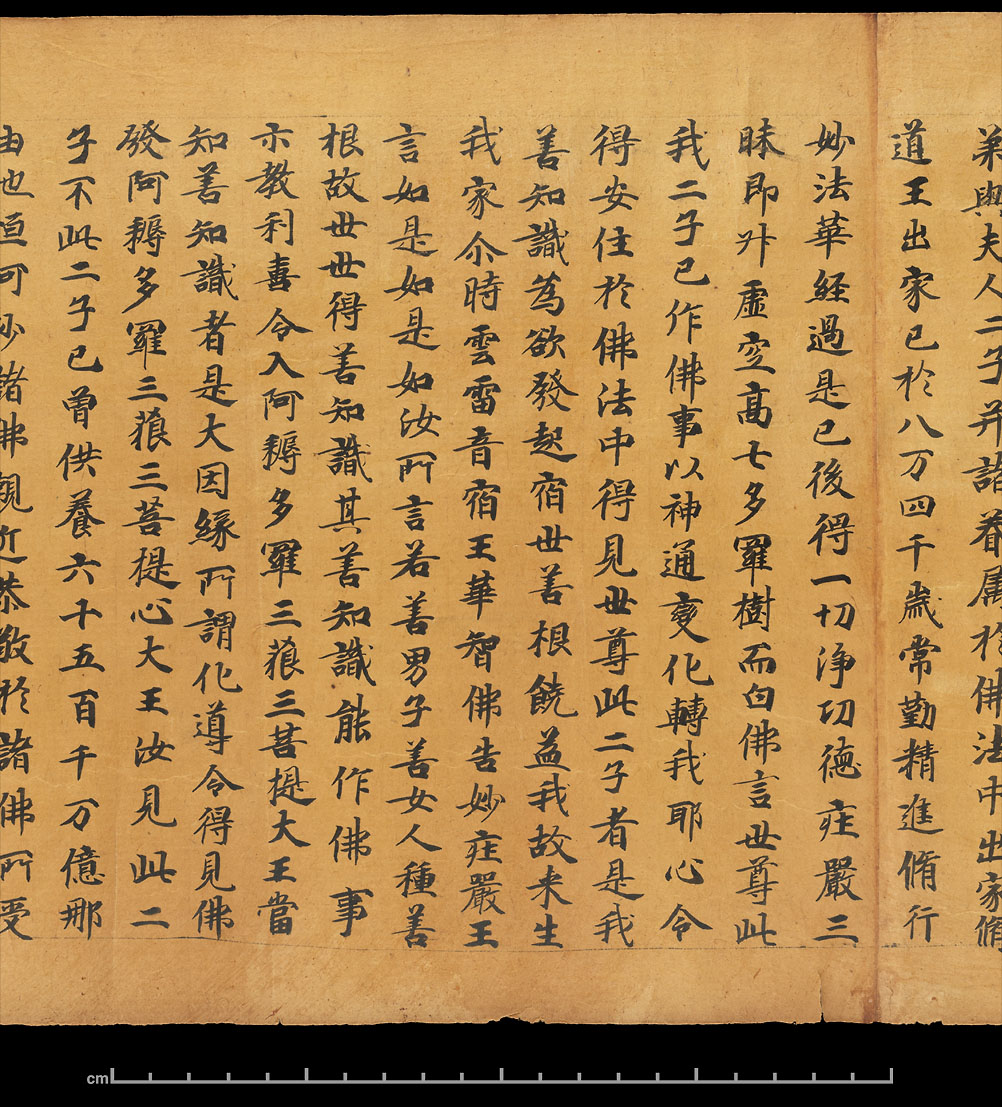 弟與夫人二子并諸眷属於佛法中出家脩
道王出家已於八万四千歲常勤精進脩行
妙法華經過是已後得一切浄功德莊嚴三
昧即升虛空高七多羅樹而白佛言世尊此
我二子已作佛事以神通變化轉我耶心令
得安住於佛法中得見世尊此二子者是我
善知識為欲發起宿世善根饒益我故来生
我家尒時雲雷音宿王華智佛告妙莊嚴王
言如是如是如汝所言若善男子善女人種善
根故世世得善知識其善知識能作佛事
示教利喜令入阿耨多羅三藐三菩提大王當
知善知識者是大因緣所謂化導令得見佛
發阿耨多羅三藐三菩提心大王汝見此二
子不此二子已曾供養六十五百千万億那
由他恒河沙諸佛親近恭敬於諸佛所受
cm